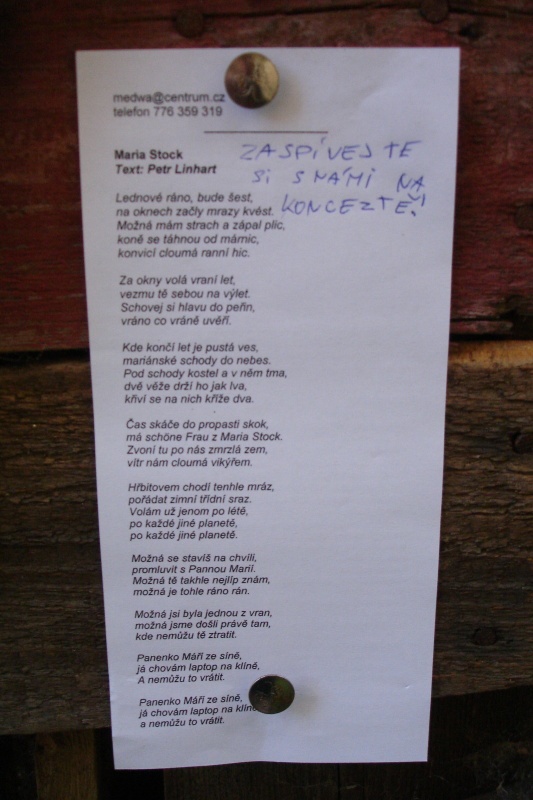 medwa@centrum.cz
telefon 776 359 319
Maria Stock
Text: Petr Linhart
ZASPÍVEJTE
SI S NÁMI NA
KONCERTĚ!
Lednové ráno, bude šest,
na oknech začly mrazy kvést.
Možná mám strach a zápal plic,
koně se táhnou od márnic,
konvicí cloumá ranní hic.
Za okny volá vraní let,
vezmu tě sebou na výlet.
Schovej si hlavu do peřin,
vráno co vráně uvěří.
Kde končí let je pustá ves,
mariánské schody do nebes.
Pod schody kostel a v něm tma,
dvě věže drží ho jak lva,
křiví se na nich kříže dva.
Čas skáče do propasti skok,
má schöne Frau z Maria Stock.
Zvoní tu po nás zmrzlá zem,
vítr nám cloumá vikýřem.
Hřbitovem chodí tenhle mráz,
pořádat zimní třídní sraz.
Volám už jenom po létě,
po každé jiné planetě,
po každé jiné planetě.
Možná se stavíš na chvíli,
promluvit s Pannou Marií.
Možná tě takhle nejlíp znám,
možná je tohle ráno rán.
Možná jsi byla jednou z vran,
možná jsme došli právě tam,
kde nemůžu tě ztratit.
Panenko Máří ze síně,
já chovám laptop na klíně,
A nemůžu to vrátit.
Panenko Máří ze síně,
já chovám laptop na klíně
a nemůžu to vrátit.